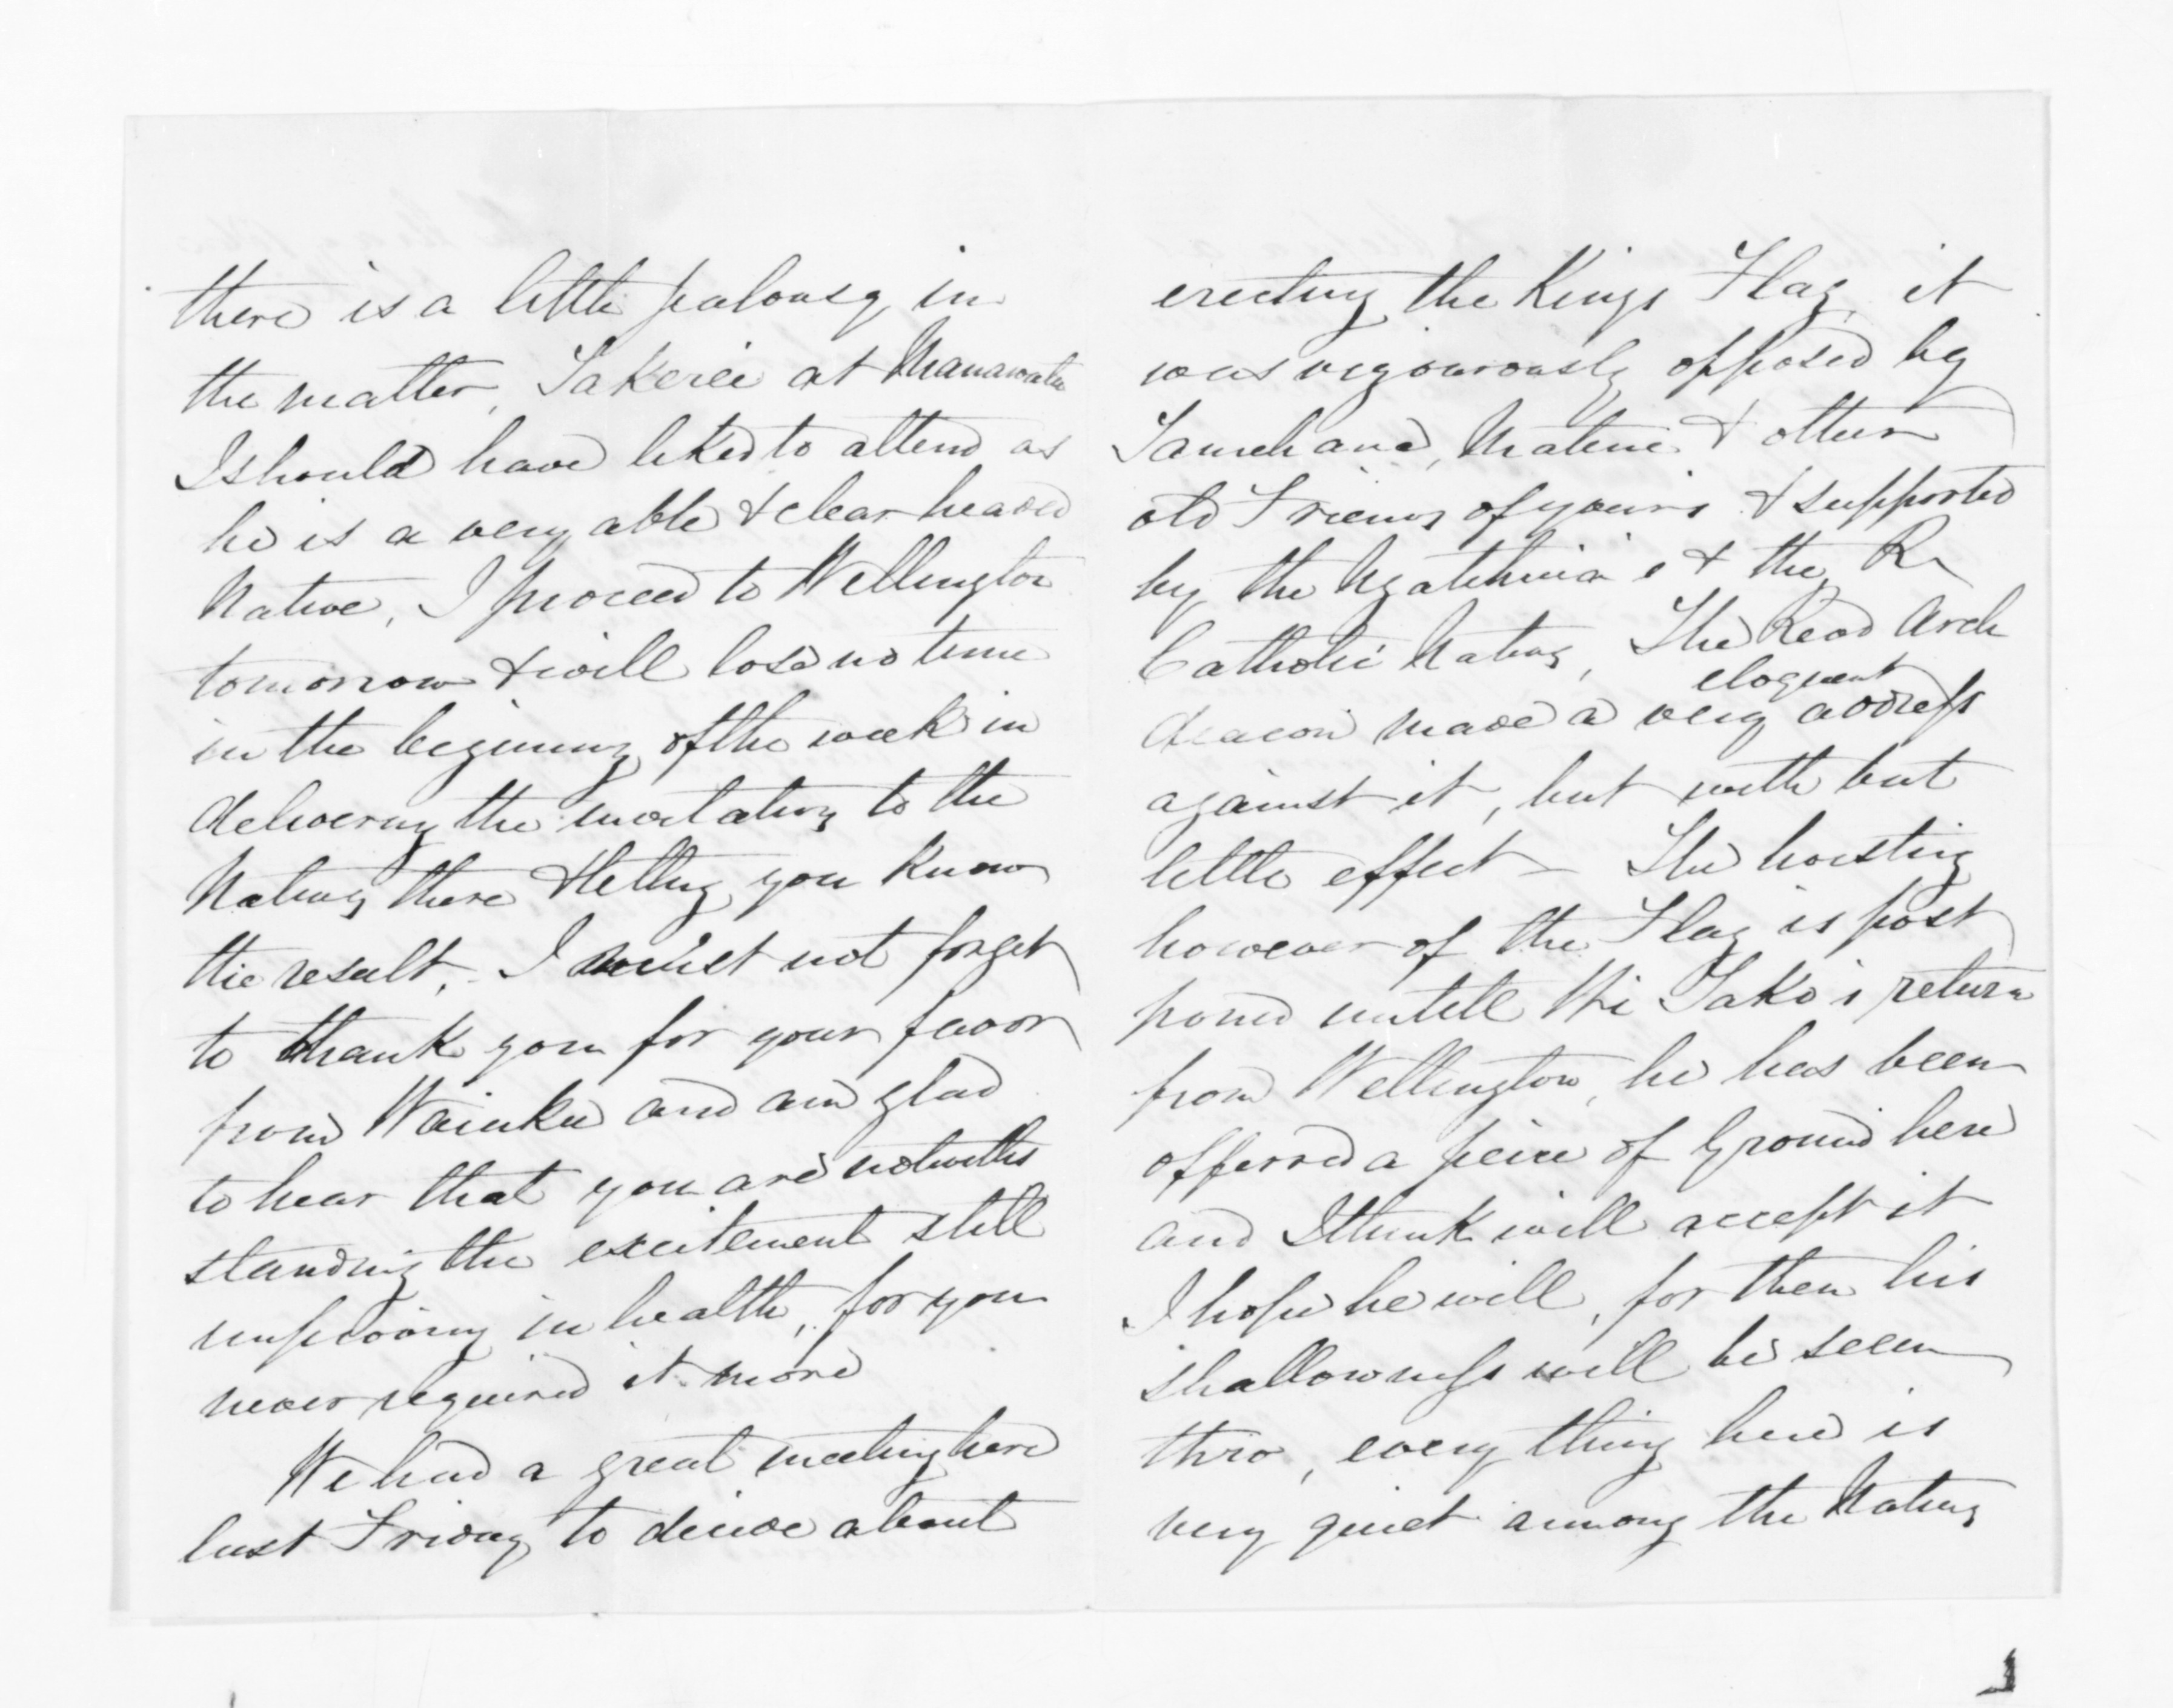 there is a little jealousy in
the matter, Takerei at Manawatu
I should have liked to attend as
he is a very able & clear headed
Native, I proceed to Wellington
tomorrow & will lose no time
in the begining of the week in
delivering the invitations to the
Natives there & letting you know
the result, - I must not forget
to thank you for your favor
from Waiuku and am glad
to hear that you are notwiths
standing the excitement still
improving in health, for you
never required it more
We had a great meeting here
last Friday to decide about
erecting the Kings Flag, it
was vigourously opposed by
Tamehana, Matene & other
old Friends of yours & supported
by the & the R
Catholic Natives, The Revd Arch
eloquent
deacon made a very address
against it, but with but
little effect - The hoisting
however of the Flag is post
poned untill Wi Tako's return
from Wellington, he has been
offerred a peice of Ground here
and I think will accept it
I hope he will, for then his
shallowness will be seen
thro, every thing here is
very quiet among the Natives